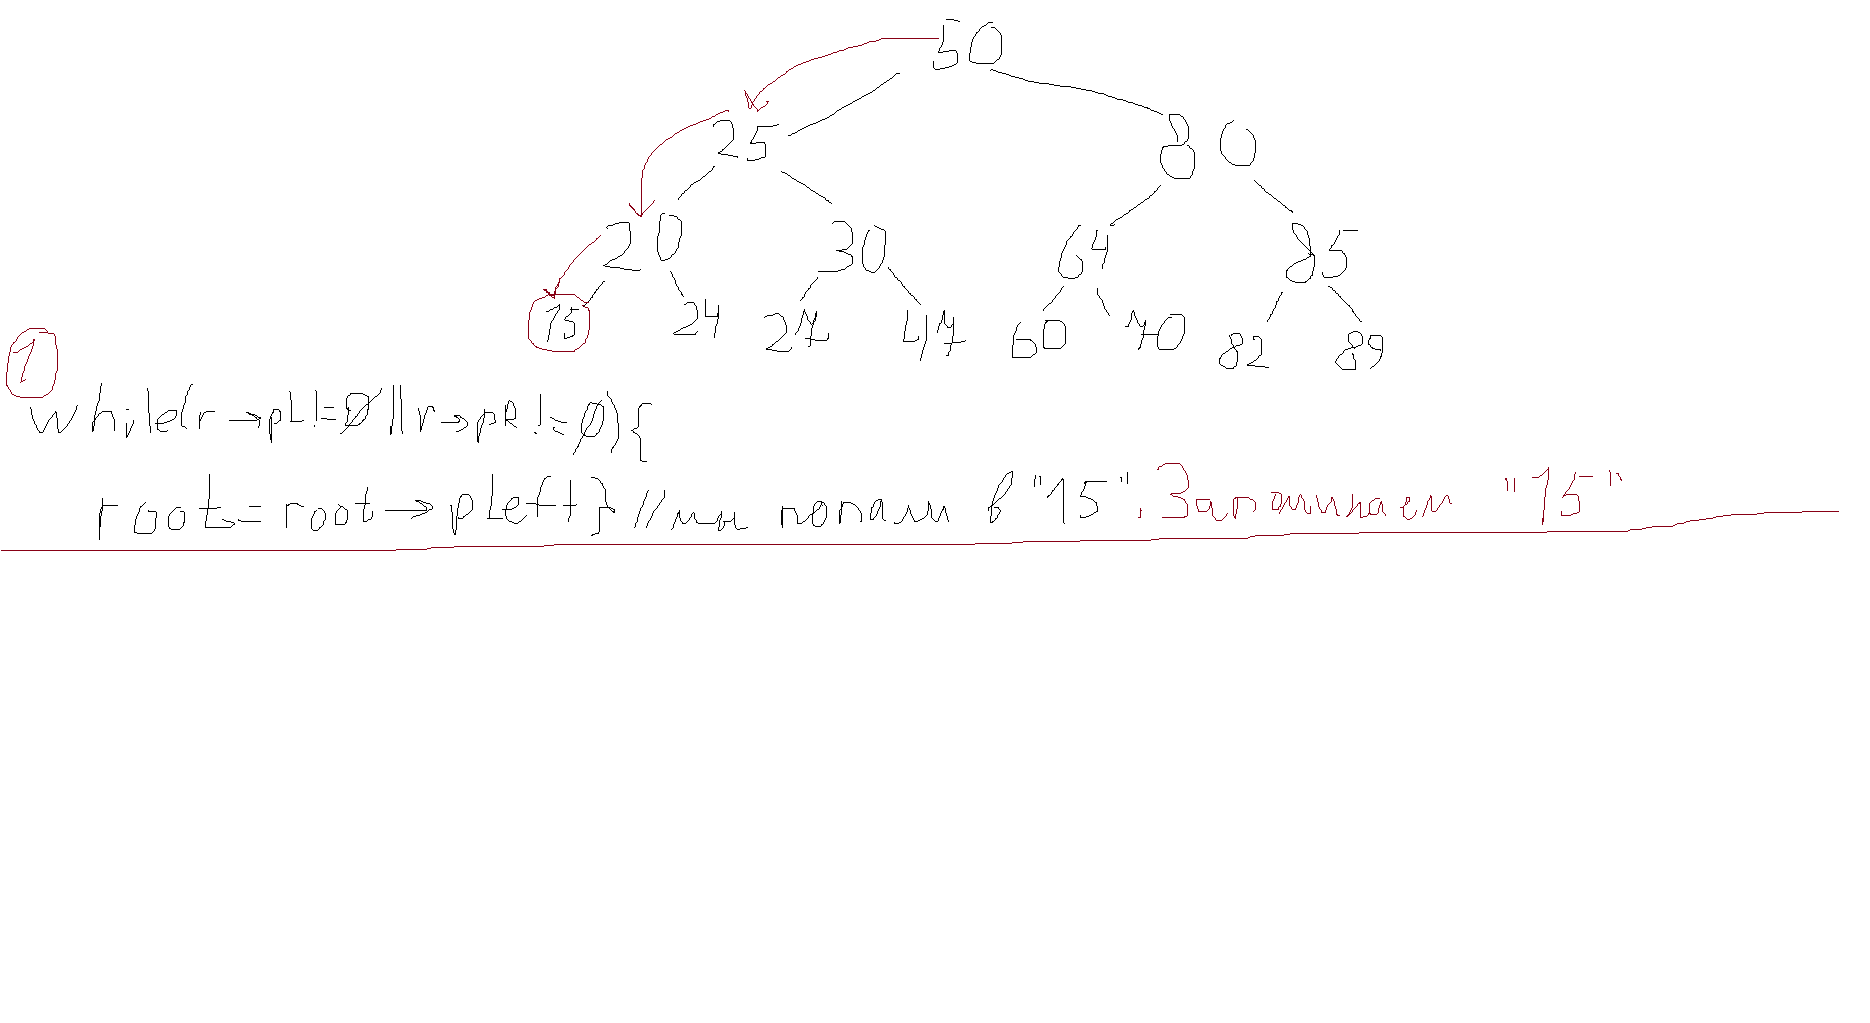 50
25 80
20 30 64 85
15 24 27 47 60 70 82 89
1
while(r→pL!=0 || r→pR!=0){
root=root→pLeft} //мы попали в "15". Запоминаем "15"